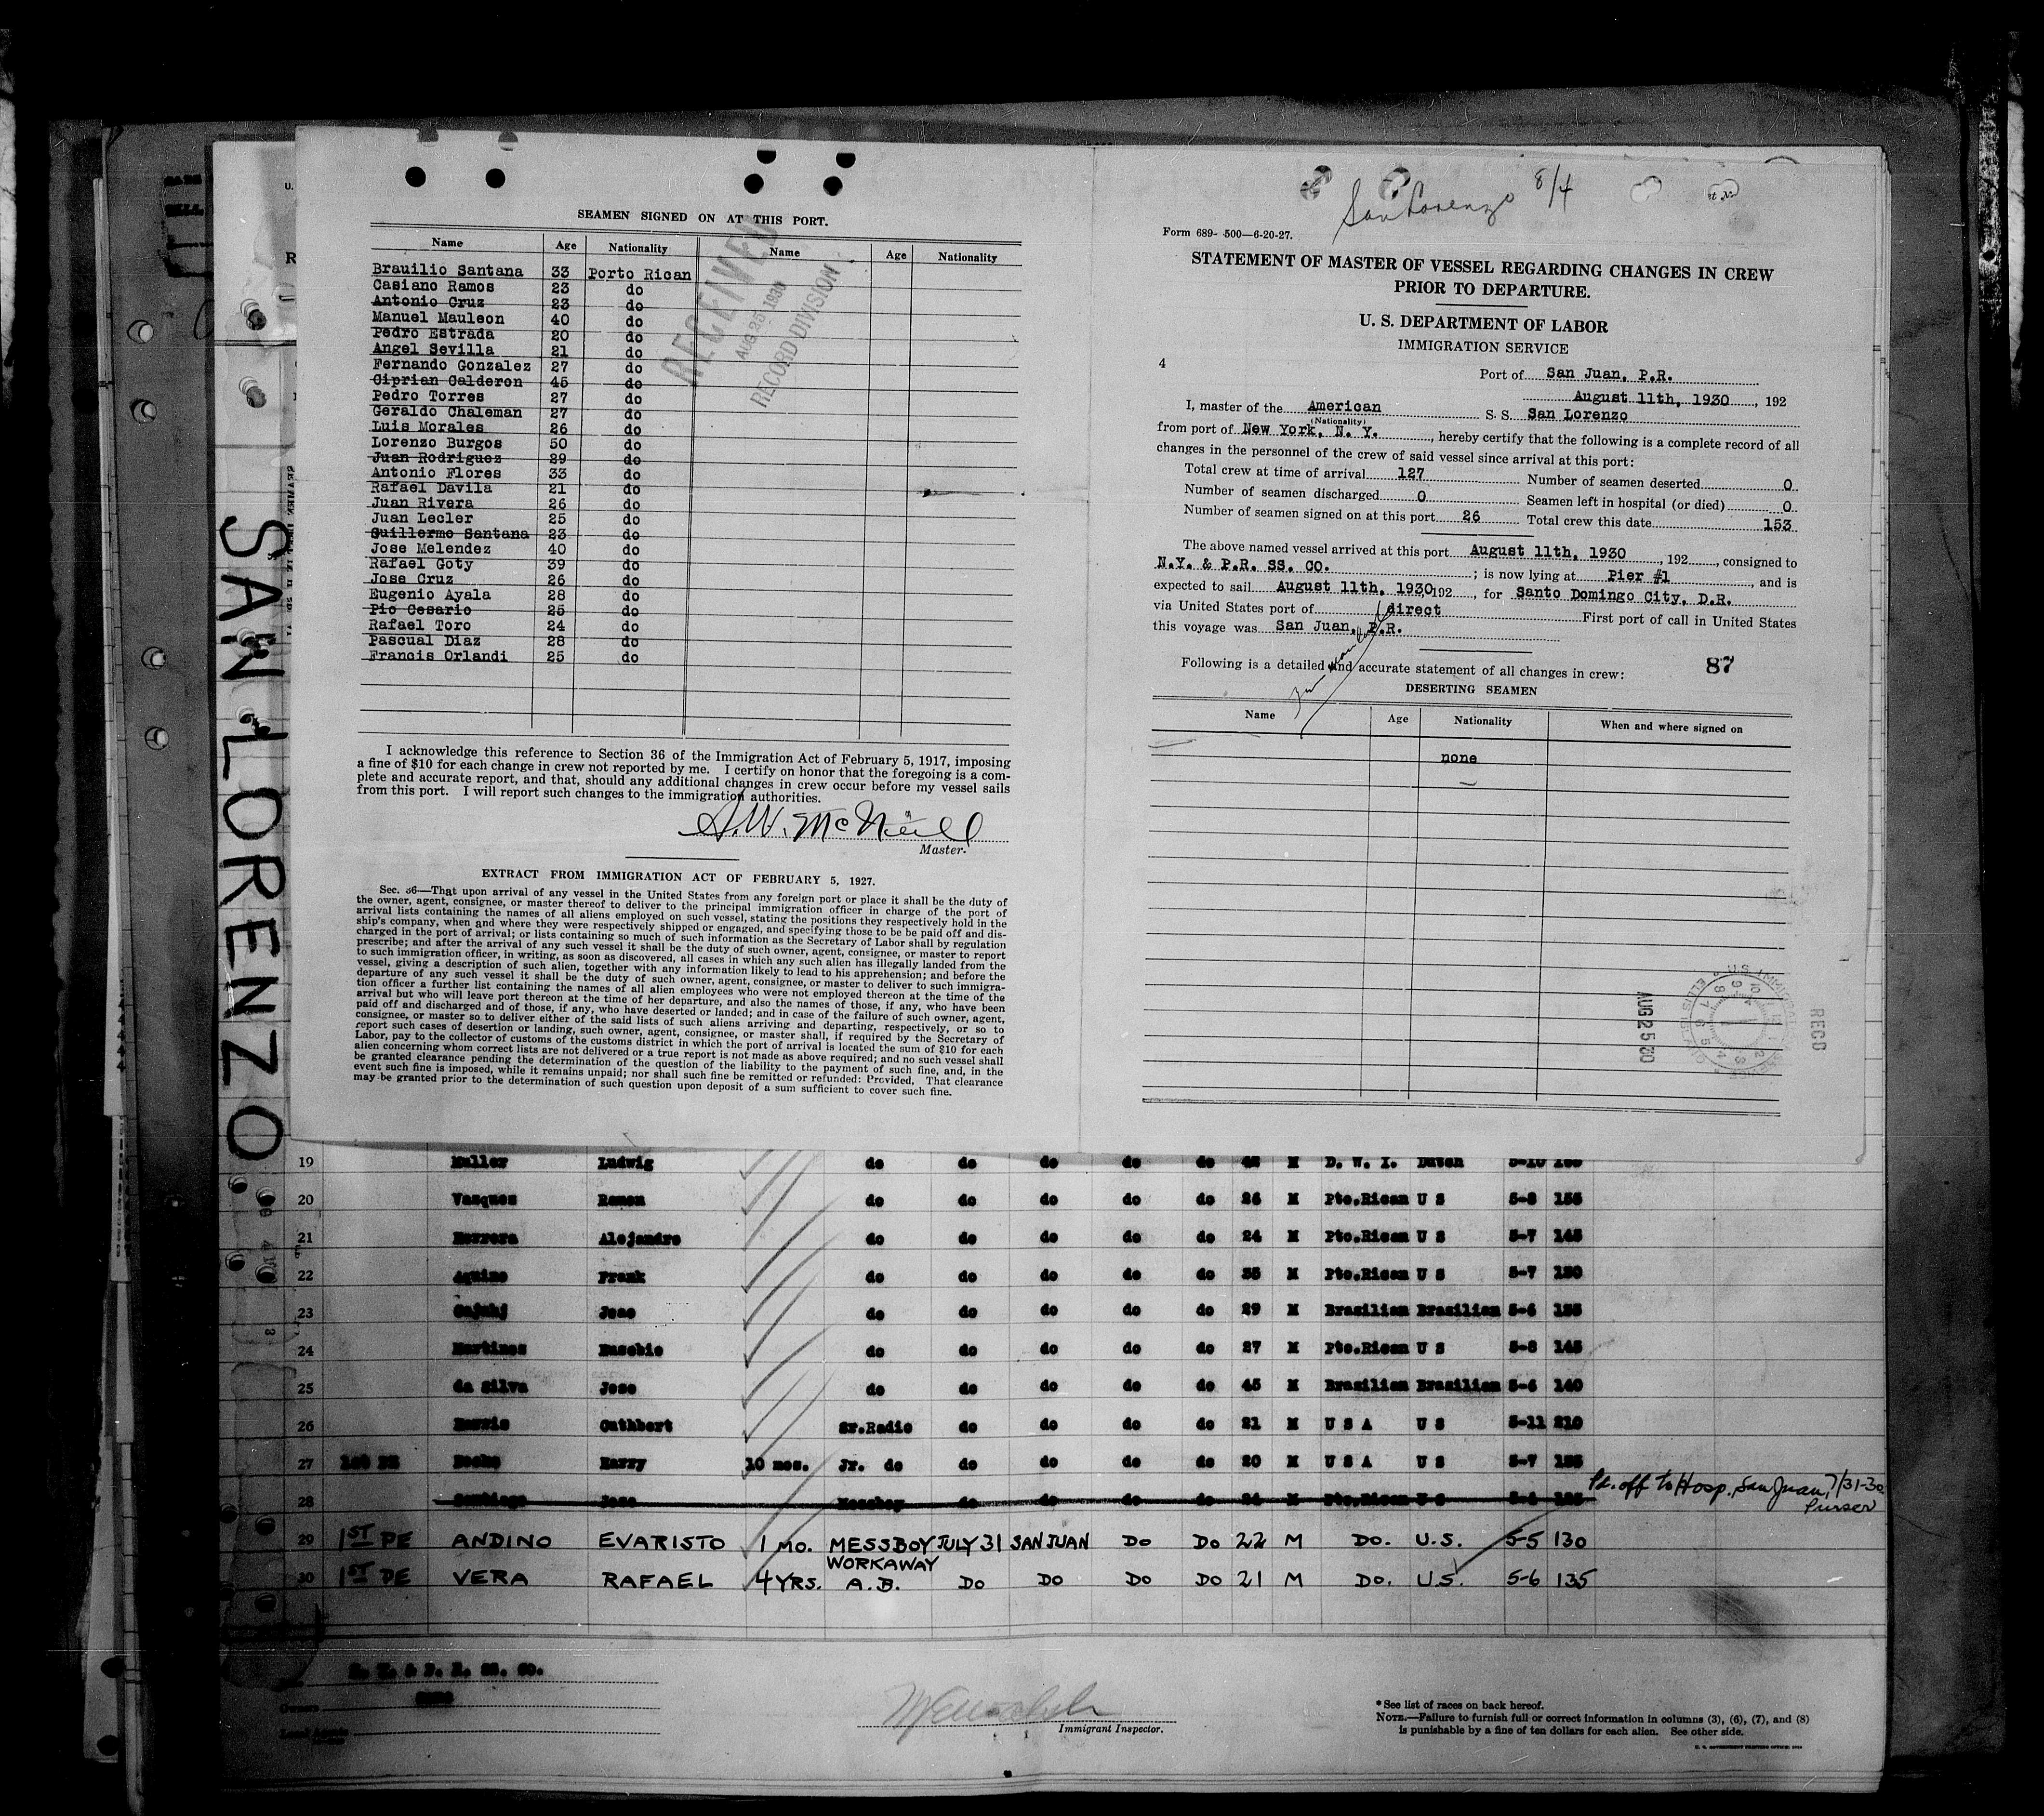 SAN LORENZO
SEAMEN SIGNED ON AT THIS PORT.
Name Age Nationality Name Age Nationality
Brauilio Santana 33 Porto Rican
Casiano Ramos 23 do
Antonio Cruz 23 do
Manuel Mauleon 40 do
Pedro Estrada 20 do
Angel Sevilla 21 do
Fernando Gonzalez 27 do
Ciprian Calderon 45 do
Pedro Torres 27 do
Geraldo Chaleman 27 do
Luis Morales 26 do
Lorenzo Burgos 50 do
Juan Rodriguez 29 do
Antonio Flores 33 do
Rafael Davila 21 do
Juan Rivera 26 do
Juan Lecler 25 do
Guillermo Santana 23 do
Jose Melendez 40 do
Rafael Goty 39 do
Jose Cruz 26 do
Eugenio Ayala 28 do
Pio Cesario 25 do
Rafael Toro 24 do
Pascual Diaz 28 do
Francis Orlandi 25 do
RECEIVED
AUG 25 1930
RECORD DIVISION
I acknowledge this reference to Section 36 of the Immigration Act of February 5, 1917, imposing
a fine of $10 for each change in crew not reported by me. I certify on honor that the foregoing is a com-
plete and accurate report, and that, should any additional changes in crew occur before my vessel sails
from this port. I will report such changes to the immigration authorities.
A.W. McNeill
Master.
EXTRACT FROM IMMIGRATION ACT OF FEBRUARY 5, 1927.
Sec. 36—That upon arrival of any vessel in the United States from any foreign port or place it shall be the duty of
the owner, agent, consignee, or master thereof to deliver to the principal immigration officer in charge of the port of
arrival lists containing the names of all aliens employed on such vessel, stating the positions they respectively hold in the
ship's company, when and where they were respectively shipped or engaged, and specifying those to be be paid off and dis-
charged in the port of arrival; or lists containing so much of such information as the Secretary of Labor shall by regulation
prescribe; and after the arrival of any such vessel it shall be the duty of such owner, agent, consignee, or master to report
to such immigration officer, in writing, as soon as discovered, all cases in which any such alien has illegally landed from the
vessel, giving a description of such alien, together with any information likely to lead to his apprehension; and before the
departure of any such vessel it shall be the duty of such owner, agent, consignee, or master to deliver to such immigra-
tion officer a further list containing the names of all alien employees who were not employed thereon at the time of the
arrival but who will leave port thereon at the time of her departure, and also the names of those, if any, who have been
paid off and discharged and of those, if any, who have deserted or landed; and in case of the failure of such owner, agent,
consignee, or master so to deliver either of the said lists of such aliens arriving and departing, respectively, or so to
report such cases of desertion or landing, such owner, agent, consignee, or master shall, if required by the Secretary of
Labor, pay to the collector of customs of the customs district in which the port of arrival is located the sum of $10 for each
alien concerning whom correct lists are not delivered or a true report is not made as above required; and no such vessel shall
be granted clearance pending the determination of the question of the liability to the payment of such fine, and, in the
event such fine is imposed, while it remains unpaid; nor shall such fine be remitted or refunded: Provided, That clearance
may be granted prior to the determination of such question upon deposit of a sum sufficient to cover such fine.
San Lorenzo 8/4
Form 689- 500—6-20-27.
STATEMENT OF MASTER OF VESSEL REGARDING CHANGES IN CREW
PRIOR TO DEPARTURE.
U. S. DEPARTMENT OF LABOR
IMMIGRATION SERVICE
4
Port of San Juan, P.R.
August 11th, 1930, 192
I, master of the American S. S. San Lorenzo
(Nationality)
from port of New York, N. Y., hereby certify that the following is a complete record of all
changes in the personnel of the crew of said vessel since arrival at this port:
Total crew at time of arrival 127 Number of seamen deserted 0
Number of seamen discharged 0 Seamen left in hospital (or died) 0
Number of seamen signed on at this port 26 Total crew this date 153
The above named vessel arrived at this port August 11th, 1930, 192, consigned to
N.Y. & P.R. SS. CO.; is now lying at Pier #1, and is
expected to sail August 11th, 1930 192, for Santo Domingo City, D.R.
via United States port of direct First port of call in United States
this voyage was San Juan, P.R.
Following is a detailed and accurate statement of all changes in crew: 87
DESERTING SEAMEN
Name Age Nationality When and where signed on
none
AUG 25 30
RECD
19 Muller Ludwig do do do do do M D. W. I. Dutch
20 Vasquez Ramon do do do do do 26 M Pto.Rican U S 5-8 155
21 Herrera Alejandro do do do do do 24 M Pto.Rican U S 5-7 145
22 Aquino Frank do do do do do 35 M Pto.Rican U S 5-7 130
23 Jose do do do do do 29 M Brazilian Brazilian 5-6 135
24 Martinez Eusebio do do do do do 27 M Pto.Rican U S 5-8 145
25 da Silva Jose do do do do do 45 M Brazilian Brazilian 5-6 140
26 Harris Cuthbert Sr.Radio do do do do 21 M U S A U S 5-11 210
27 Harry 10 mos. Jr. do do do do do 20 M U S A U S 5-7 135
28 Santiago Jose Messboy do do do do M Pto.Rican U S Pd. off to Hosp. San Juan, 7/31-30
Purser
29 1ST PE ANDINO EVARISTO 1 MO. MESSBOY JULY 31 SAN JUAN DO DO 22 M DO. U.S. 5-5 130
WORKAWAY
30 1ST PE VERA RAFAEL 4 YRS. A.B. DO DO DO DO 21 M DO. U.S. 5-6 135
N. Y. & P. R. SS. CO.
Owners
Local Agents
Immigrant Inspector.
* See list of races on back hereof.
NOTE.—Failure to furnish full or correct information in columns (3), (6), (7), and (8)
is punishable by a fine of ten dollars for each alien. See other side.
U. S. GOVERNMENT PRINTING OFFICE